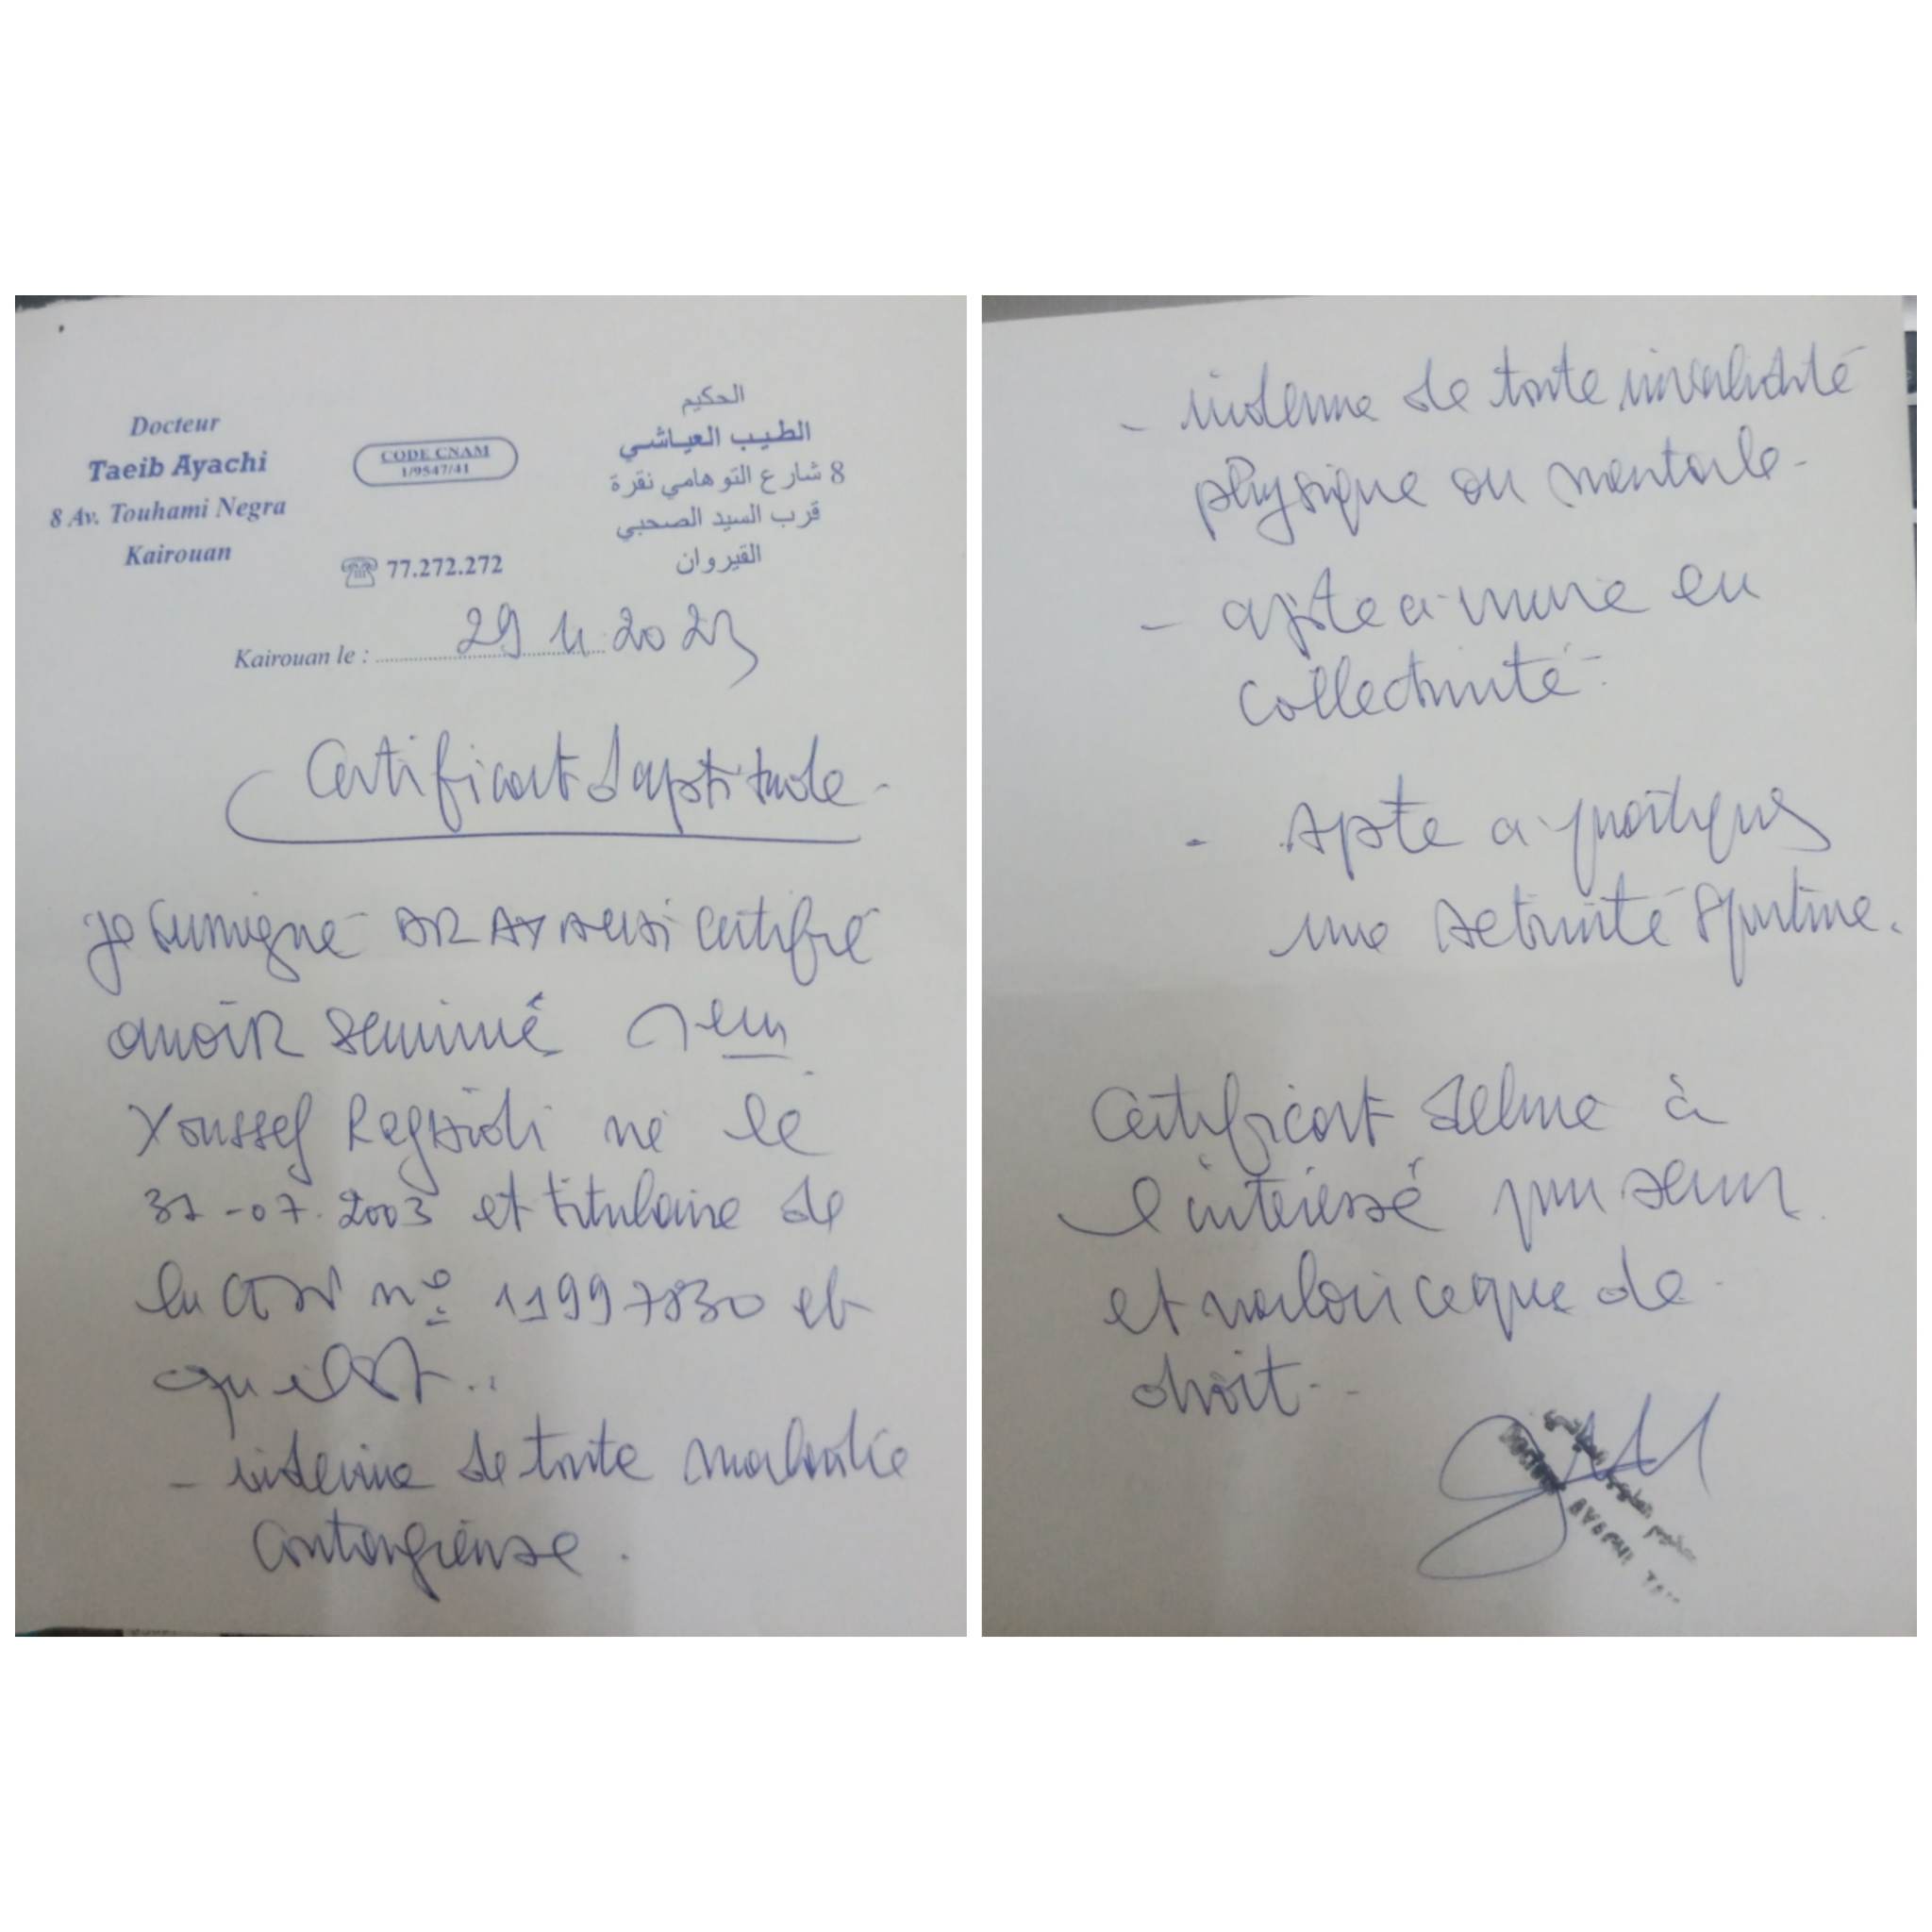 Docteur
Taeib Ayachi
8 Av. Touhami Negra
Kairouan
CODE CNAM
1/9547/41
77.272.272
الحكيم
الطيب العياشي
8 شارع التوهامي نقرة
قرب السيد الصحبي
القيروان
Kairouan le : 29 11 2023
Certificat d'aptitude.
je sousigné DR AYACHI certifié
avoir examiné
Youssef né le
31-07.2003 et titulaire de
la CIN nº 11997830 et
qu'il est..
- indemne de toute maladie
contagieuse.
- indemne de toute invalidité
physique ou mentale.
- apte a vivre en
collectivité.
- Apte a pratiquer
une activité sportive.
Certificat délivré à
l'intéressé pour servir
et valoir ce que de
droit.